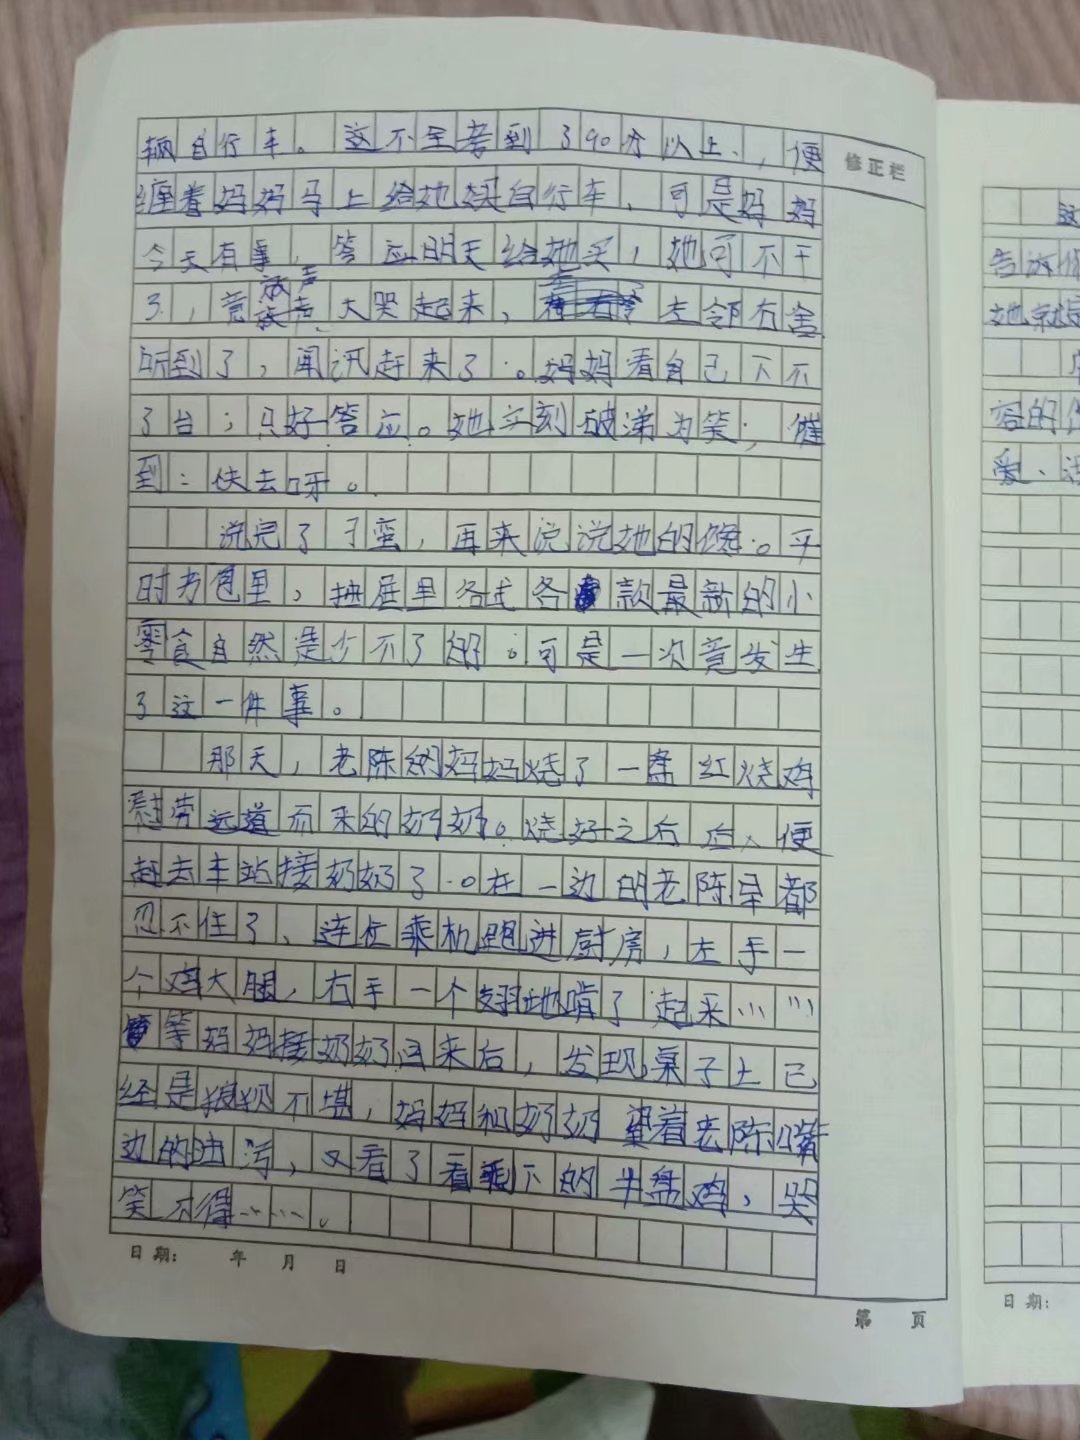 辆自行车。这不至考到了90分以上，便
缠着妈妈马上给她买自行车，可是妈妈
今天有事，答应明天给她买，她可不干
了，竟放声大哭起来，左邻右舍
听到了，闻讯赶来了。妈妈看自己下不
了台；只好答应。她立刻破涕为笑，催
到：快去呀。
说完了刁蛮，再来说说她的馋。平
时书包里，抽屉里各式各款最新的小
零食自然是少不了的。可是一次竟发生
了这一件事。
那天，老陈的妈妈烧了一盘红烧鸡
慰劳远道而来的奶奶。烧好之后，便
赶去车站接奶奶了。在一边的老陈早都
忍不住了、连忙乘机跑进厨房，左手一
个鸡大腿，右手一个翅地啃了起来……
等妈妈接奶奶回来后，发现桌子上已
经是狼狈不堪，妈妈和奶奶望着老陈嘴
边的油污，又看了看剩下的半盘鸡，哭
笑不得……。
修正栏
日期： 年 月 日
第 页
这
告诉你
她就是
容的
爱、活
日期：